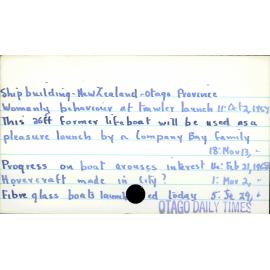 Ship building - New Zealand - Otago Province
Womanly behaviour at trawler launch 11: Oct 2, 1967
This 26ft former lifeboat will be used as a
pleasure launch by a Company Bay family
18: Nov 13, "
Progress on boat arouses interest 14: Feb 21, 1968
Hovercraft made in city? 1: Mar 2, "
Fibre glass boats launched today 5: Je 29, "
OTAGO DAILY TIMES